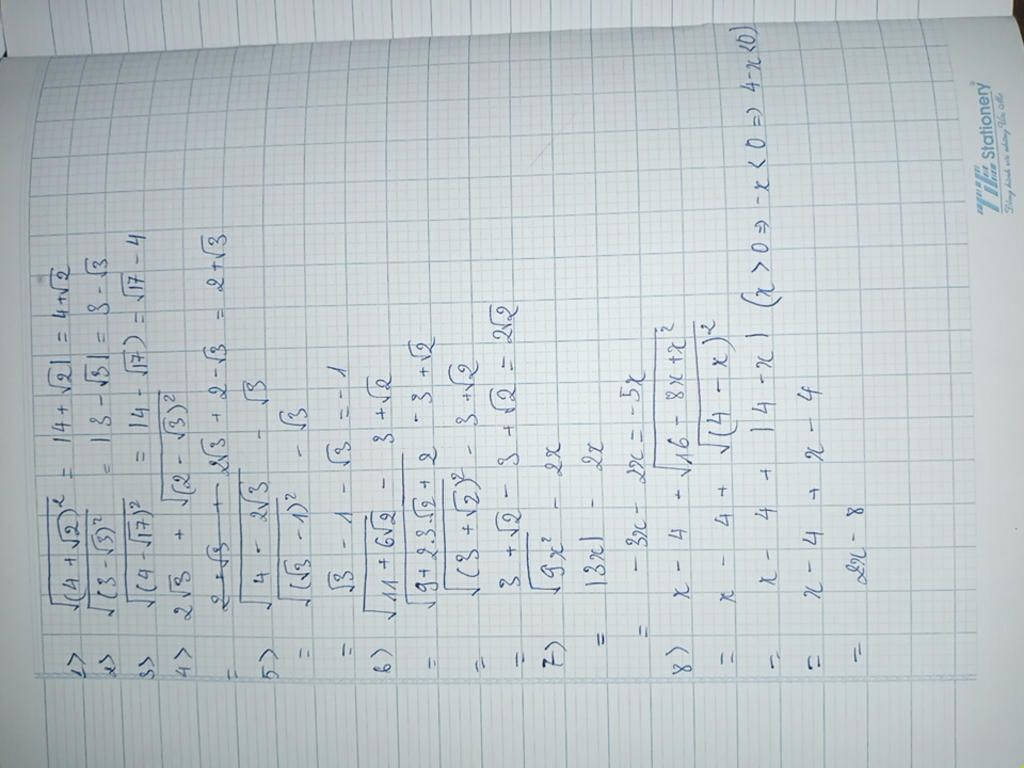 1) √(4+√2)² = |4+√2| = 4+√2
2) √(3-√3)² = |3-√3| = 3-√3
3) √(4-√17)² = |4-√17) = √17-4
4) 2√3 + √(2-√3)²
= 2√3 + 2-√3 = 2+√3
5) √4-2√3 - √3
= √(√3-1)² - √3
= √3-1-√3 = -1
6) √11+6√2 - 3+√2
= √9+2.3.√2+2 - 3+√2
= √(3+√2)² - 3+√2
= 3+√2-3+√2 = 2√2
7) √9x² - 2x
= |3x| - 2x
= -3x-2x = -5x
8) x-4+√16-8x+x²
= x-4+√(4-x)²
= x-4+|4-x| (x>0 => -x<0 => 4-x<0)
= x-4+x-4
= 2x-8
TiTi Stationery